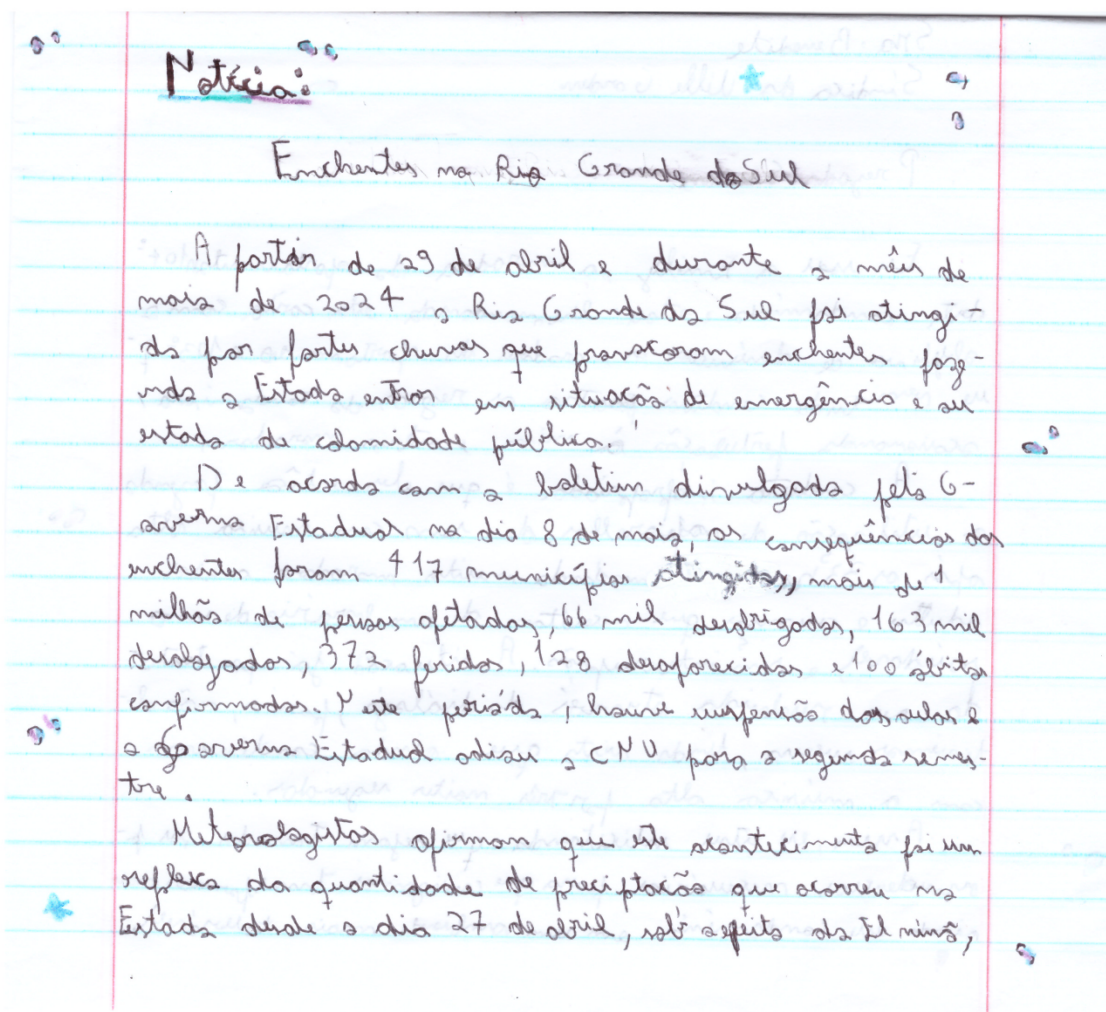 Notícia:
Enchentes no Rio Grande do Sul
A partir de 29 de abril e durante o mês de
maio de 2024 o Rio Grande do Sul foi atingi-
do por fortes chuvas que provocaram enchentes faze-
ndo o Estado entrar em situação de emergência e ou
estado de calamidade pública.
De acordo com o boletim divulgado pelo G-
overno Estadual no dia 8 de maio, as consequências das
enchentes foram 417 municípios atingidos, mais de 1
milhão de pessoas afetadas, 66 mil desabrigados, 163 mil
desalojados, 372 feridos, 128 desaparecidos e 100 óbitos
confirmados. Neste período, houve suspensão das aulas e
o governo Estadual adiou o CNU para o segundo semes-
tre.
Meteorologistas afirmam que este acontecimento foi um
reflexo da quantidade de preciptacão que ocorreu no
Estado desde o dia 27 de abril, sob efeito do El ninõ,